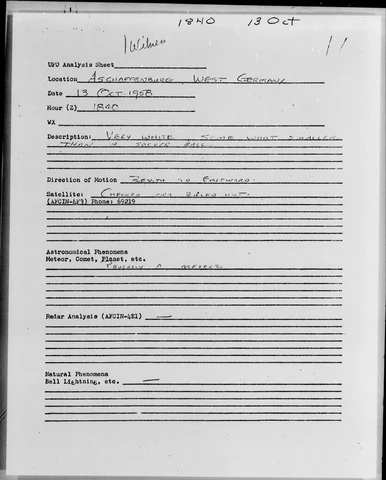 1840 13 Oct
1 Witness 11
UFO Analysis Sheet
Location ASCHAFFENBURG, WEST GERMANY
Date 13 OCT 1958
Hour (Z) 1840
WX
Description: VERY WHITE SOME WHAT SMALLER
THAN A SOCCER BALL.
Direction of Motion ZENITH TO EASTWARD.
Satellite: CHECKED AND RULED OUT.
(AFCIN-AF3) Phone: 69219
Astronomical Phenomena
Meteor, Comet, Planet, etc.
PROBABLY A METEOR
Radar Analysis (AFCIN-4E1) —
Natural Phenomena
Ball Lightning, etc. —